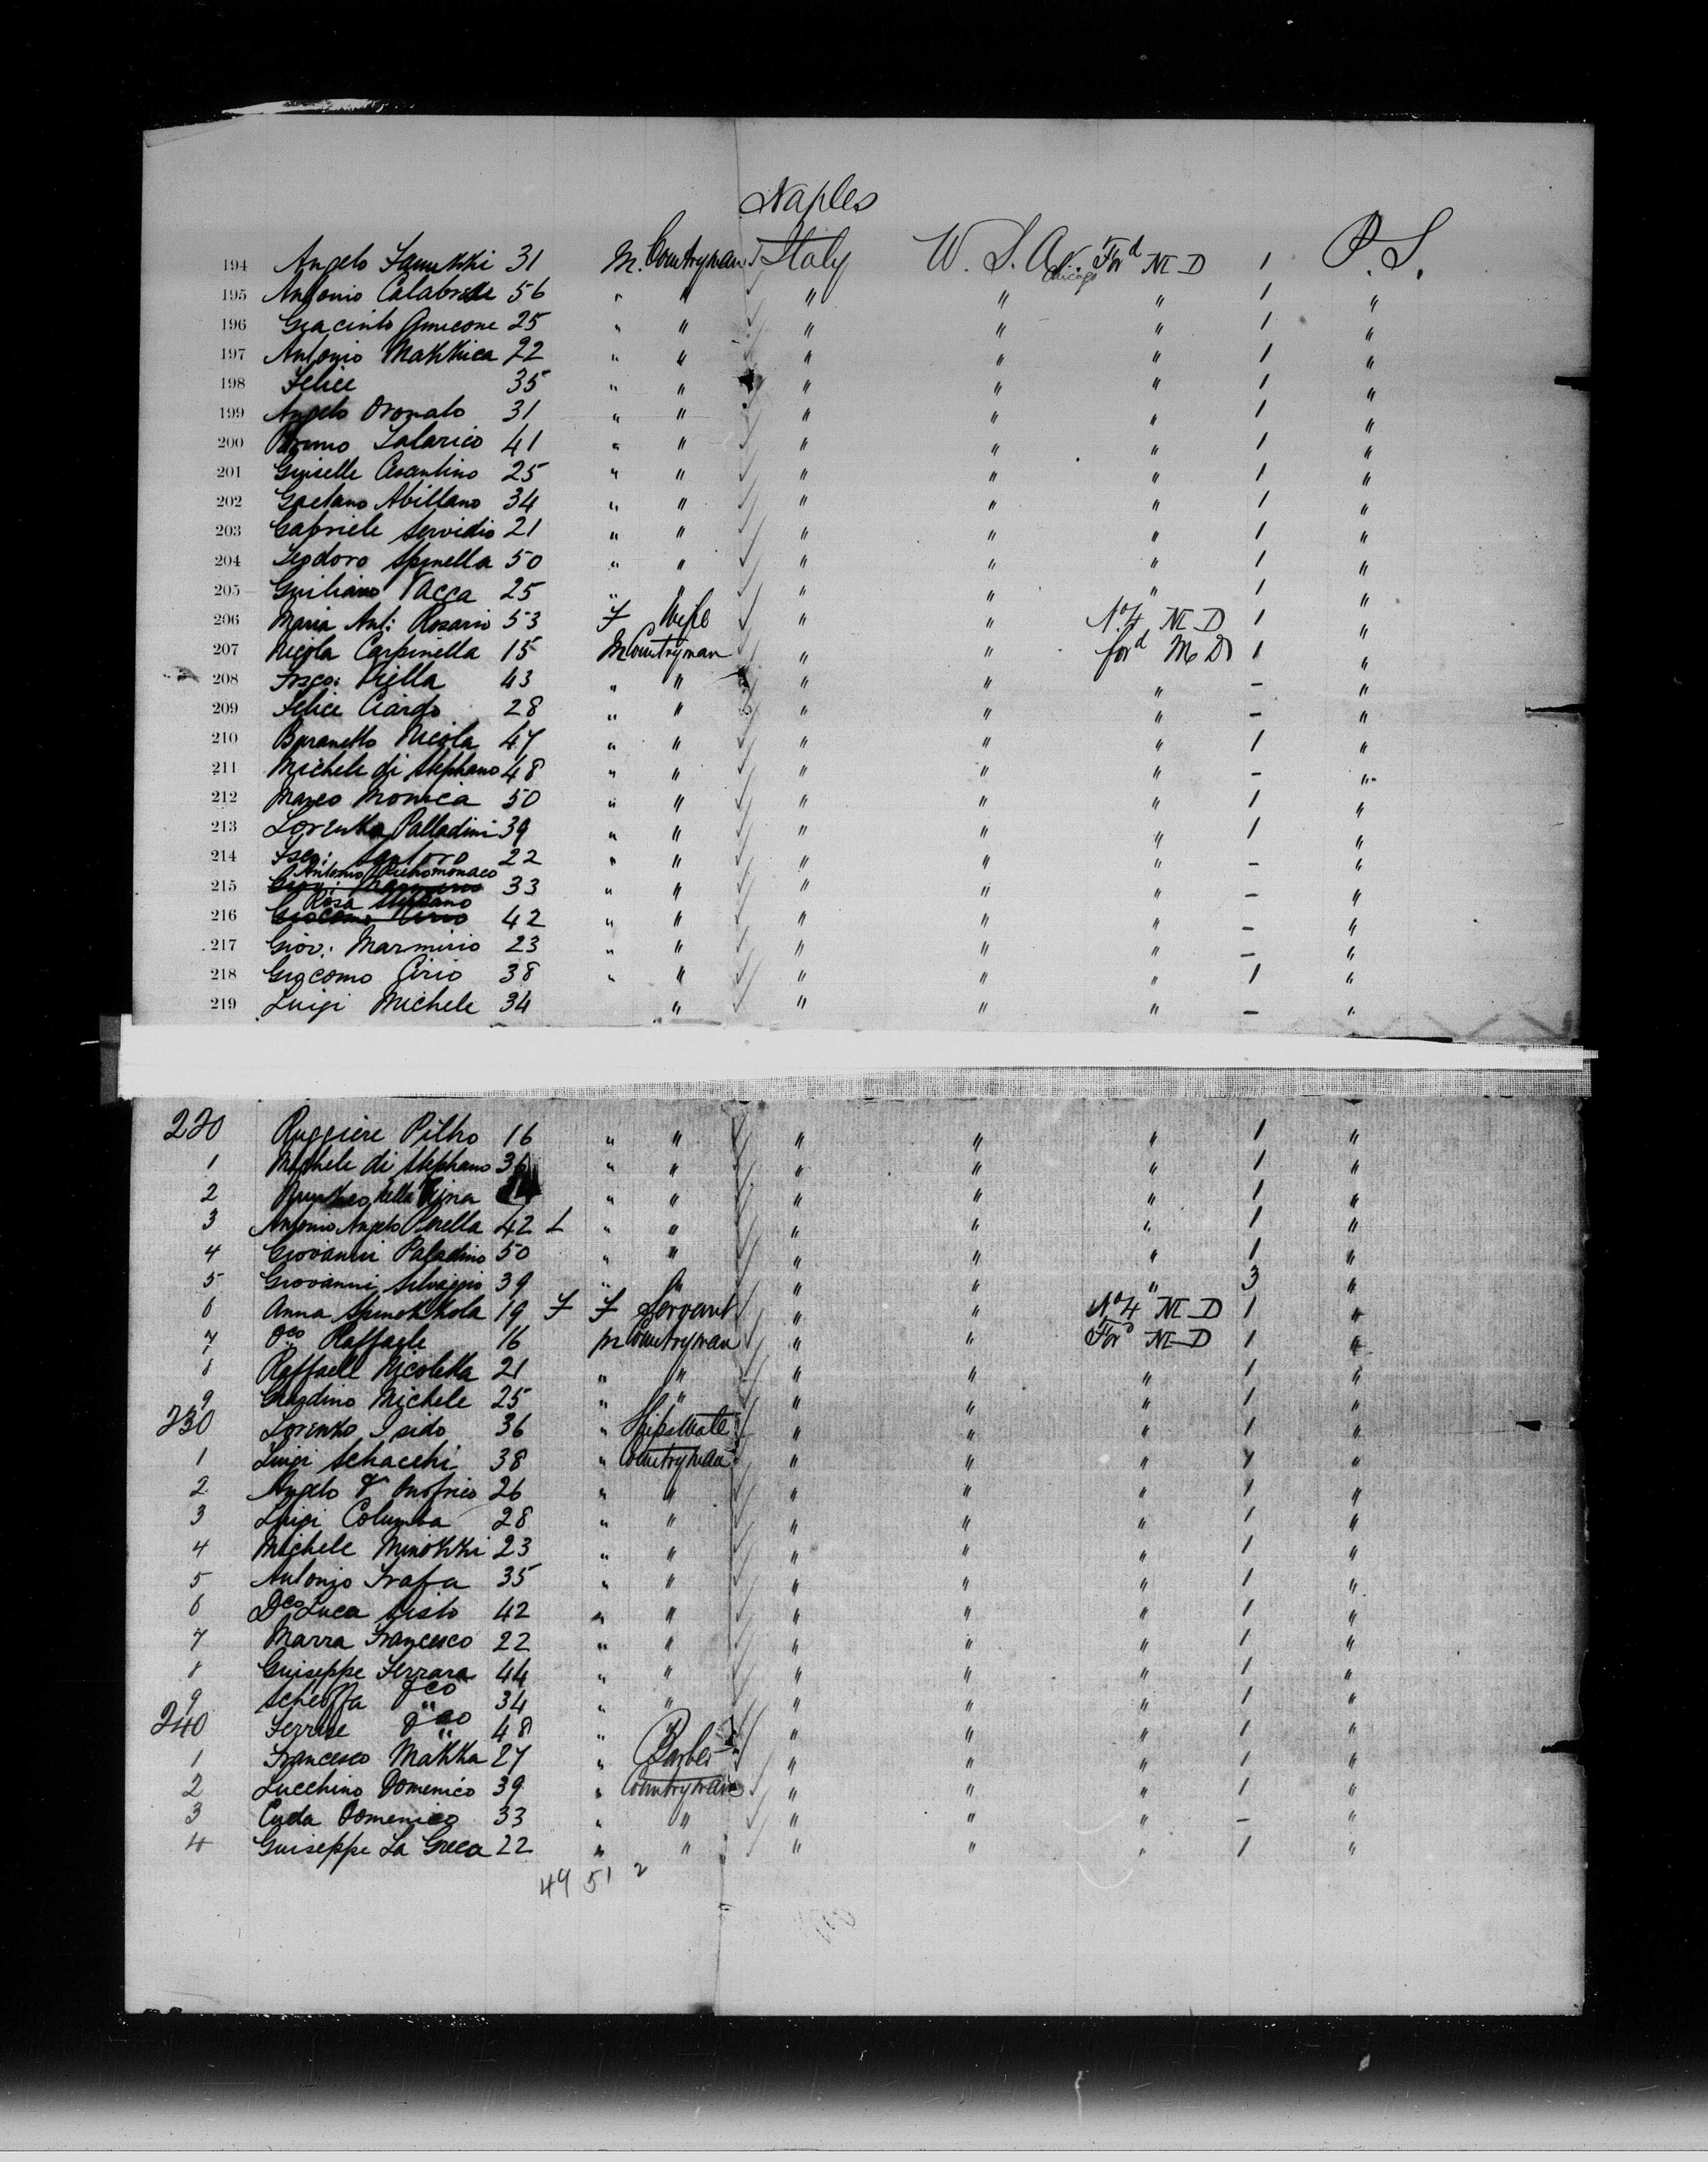 Naples
194 Angelo Iannukki 31 M. Countryman Italy U.S.A. Chicago Ford M D 1 P.S.
195 Antonio Calabrese 56 " " " " " 1 "
196 Giacinto Amicone 25 " " " " " 1 "
197 Antonio Makkica 22 " " " " " 1 "
198 Felice 35 " " " " " 1 "
199 Angelo Oronato 31 " " " " " 1 "
200 Bruno Talarico 41 " " " " " 1 "
201 25 " " " " " 1 "
202 Gaetano Abillano 34 " " " " " 1 "
203 Gabriele Servidio 21 " " " " " 1 "
204 Teodoro Spinella 50 " " " " " 1 "
205 Guiliano Vacca 25 " " " " " 1 "
206 Maria Ant: Rosario 53 F Wife " " No 4 M D 1 "
207 Nicola Carpinella 15 M Countryman " " ford M D 1 "
208 Villa 43 " " " " " - "
209 Felice Ciardo 28 " " " " " - "
210 Baranello Nicola 47 " " " " " 1 "
211 Michele di Stephano 48 " " " " " - "
212 Marco Monica 50 " " " " " 1 "
213 Lorenko Palladini 39 " " " " " 1 "
214 Santoro 22 " " " " " - "
Antonio
215 Giov: Marmirio 33 " " " " " - "
Rosa Stephano
216 Giacomo Cirio 42 " " " " " - "
217 Giov: Marmirio 23 " " " " " - "
218 Giacomo Cirio 38 " " " " " 1 "
219 Luigi Michele 34 " " " " - "
220 Ruggiere Pitho 16 " " " " " 1 "
1 Michele di Stephano 36 " " " " " 1 "
2 della " " " " " 1 "
3 Antonio Angelo Perella 42 L " " " " " 1 "
4 Giovanni Paladino 50 " " " " " 1 "
5 Giovanni Selvaggio 39 " " " " " 3 "
6 Anna Spinokkola 19 F F Servant " " No 4 M D 1 "
7 Dco Raffaele 16 M Countryman " " Ford M D 1 "
8 Raffaele Nicoletta 21 " " " " " 1 "
9 Giardino Michele 25 " " " " " 1 "
230 Lorenko Isido 36 " Ships Mate " " " 1 "
1 Luigi Schacchi 38 " Countryman " " " 1 "
2 Angelo D'Onofrico 26 " " " " " 1 "
3 Luigi Columba 28 " " " " " 1 "
4 Michele Minokki 23 " " " " " 1 "
5 Antonio Trafa 35 " " " " " 1 "
6 Dco Luca Sisto 42 " " " " " 1 "
7 Marra Francesco 22 " " " " " 1 "
8 Guiseppe Ferrara 44 " " " " " 1 "
9 Dco 34 " " " " " 1 "
240 Ferrise Dco 48 " " " " 1 "
1 Francesco Makka 27 " Barber " " " 1 "
2 Lucchino Domenico 39 " Countryman " " " 1 "
3 Cuda Domenico 33 " " " " " - "
4 Guiseppe La Greca 22 " " " " " 1 "
49 51 2